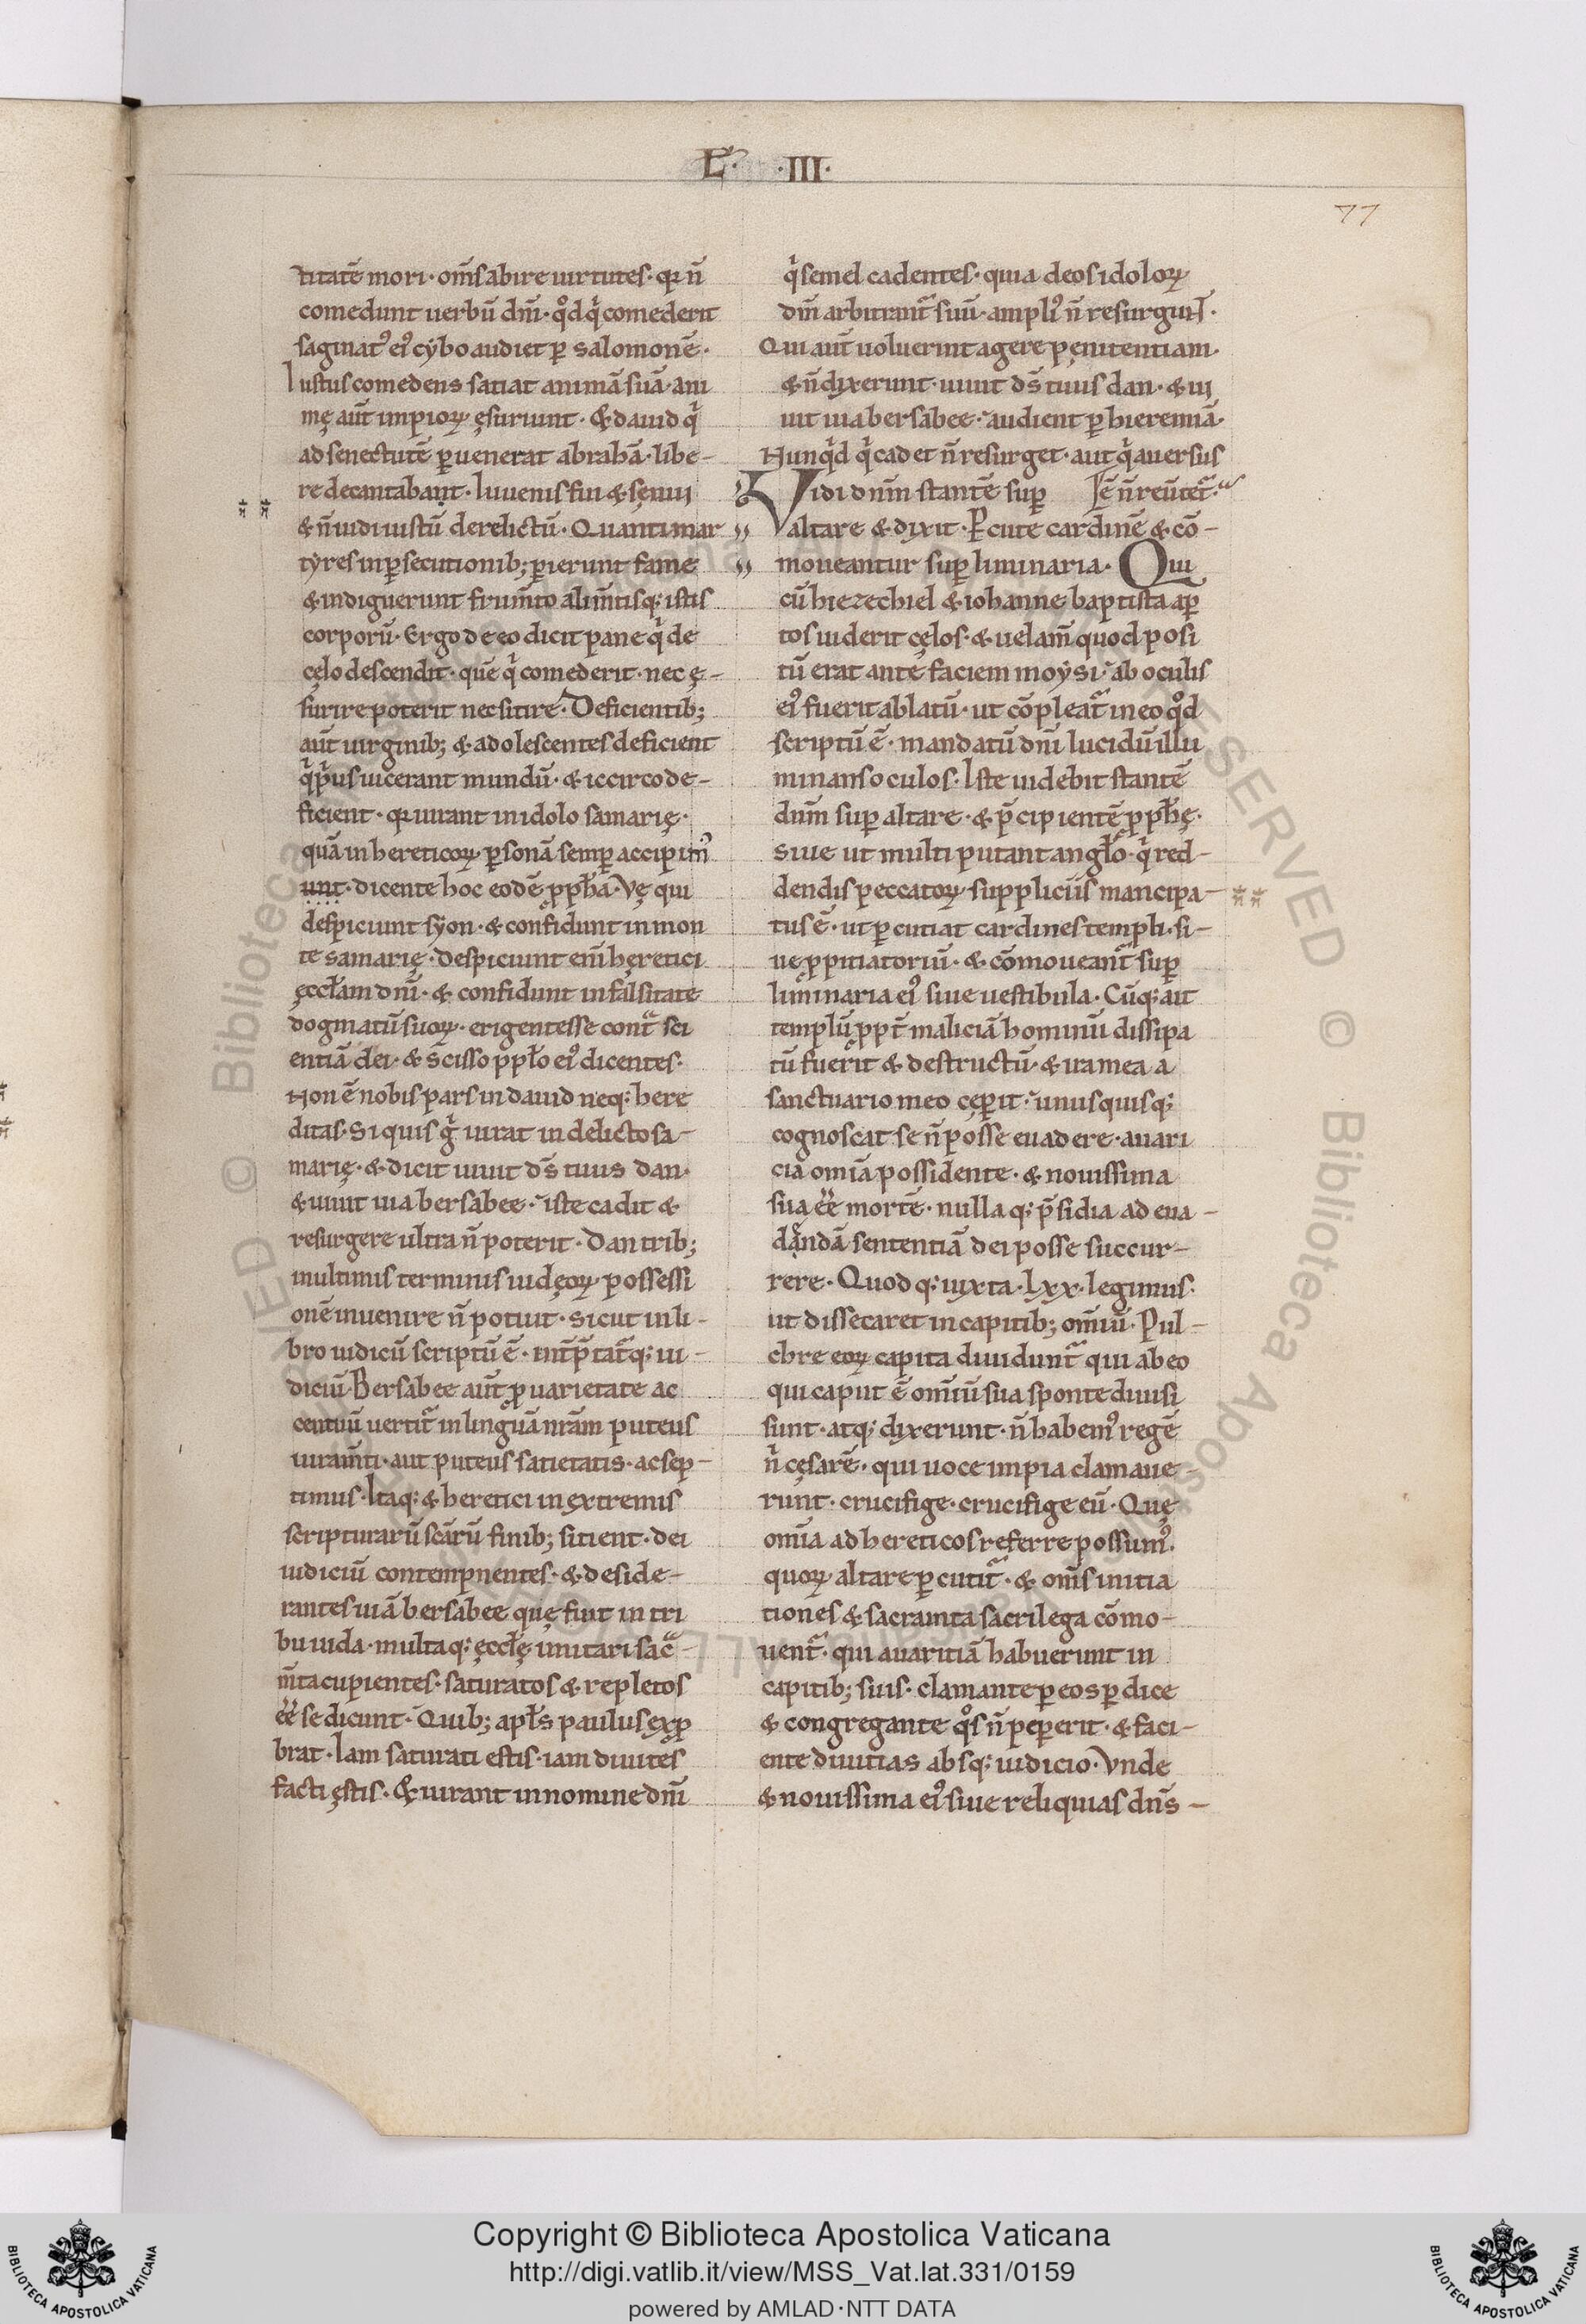 L̃· ·III·
77
titatē mori · om̄s abire uirtutes · qr n̄
comedunt uerbū dn̄i · qd̊ qͥ comederit
saginatꝰ eiꝰ cybo audiet ꝑ salomonē ·
Iustus comedens satiat animā suā · ani
mę aut̄ impioꝝ ęsuriunt · & dauid qͥ
ad senectutē ꝑuenerat abrahā · libe-
re decantabant · Iuuenis fui & senui
& n̄ uidi iustū derelictū · Quanti mar
tyres in ꝑsecutionib; ꝑierunt fame
& indiguerunt frum̄to alim̄tisq; istis
corporū · Ergo de eo dicit pane qͥ de
cęlo descendit · quē qͥ comederit · nec ę-
surire poterit nec sitire · Deficientib;
aut̄ uirginib; & adolescentes deficient
qͥ pͥus uicerant mundū · & iccirco de-
ficient · qr iurant in idolo samarię ·
quā in hereticoꝝ ꝑsonā semꝑ accipimꝰ
unt · dicente hoc eodē ꝓpħa · Vę qui
despiciunt syon · & confidunt in mon
te samarię · Despiciunt eni̅ hęretici
ęccłam dn̄i · & confidunt in falsitate
dogmatū suoꝝ · erigentes se contͣ sci
entiā dei · & scisso ppło eiꝰ dicentes ·
Non ē nobis pars in dauid neq; here
ditas · Si quis gͥ iurat in delicto sa-
marię · & dicit uiuit ds̄ tuus dan ·
& uiuit uia bersabee · iste cadit &
resurgere ultra n̄ poterit · Dan trib;
in ultimis terminis iudęoꝝ possessi
onē inuenire n̄ potuit · sicut in li-
bro iudicū scriptū ē · int̄p̄tatͣq; iu-
diciū · Bersabee aut̄ ꝓ uarietate ac
centuū uertitͣ in linguā nr̄am puteus
iuram̄ti · aut puteus satietatis · ac sep-
timus · Itaq; & heretici in extremis
scripturarū scārū finib; sitient · dei
iudiciū contempnentes · & deside-
rantes uiā bersabee quę fuit in tri
bu iuda · multaq; ęccłę imitari sacͣ-
m̄ta cupientes · saturatos & repletos
ēē se dicunt · Quib; apłs paulus exꝓ
brat · Iam saturati estis · iam diuites
facti estis · & iurant in nomine dn̄i
qͥ semel cadentes · quia deos idoloꝝ
dn̄i arbitrantͬ suū · ampliꝰ n̄ resurgunt ·
Qui aut̄ uoluerint agere pęnitentiam ·
& n̄ dixerunt · uiuit ds̄ tuus dan · & ui
uit uia bersabee · audient ꝑ hieremiā ·
Nunqͥd qͥ cadet n̄ resurget · aut qͥ auersus
ē n̄ reūtetͬ ·
Vidi dn̄m stantē suꝑ
altare & dixit · Percute cardinē & cō-
moueantur suꝑ liminaria · Qui
cū hiezechiel & iohanne baptista aꝑ
tos uiderit cęlos · & uelam̄ quod posi
tū erat ante faciem moysi · ab oculis
eiꝰ fuerit ablatū · ut cōpleatͬ in eo qd̊
scriptū ē · mandatū dn̄i lucidū illu
minans oculos · Iste uidebit stantē
dn̄m suꝑ altare · & p̄cipientē ꝓpħę ·
siue ut multi putant angło · qͥ red-
dendis peccatoꝝ suppliciis mancipa-
tus ē · ut ꝑcutiat cardines templi · si-
ue ꝓpitiatoriū · & cōmoueantͬ suꝑ
liminaria eiꝰ siue uestibula · Cūq; ait
templū ꝓpt̄ maliciā hominū dissipa
tū fuerit & destructū · & ira mea a
sanctuario meo cęperit · unusquisq;
cognoscat se n̄ posse euadere · auari
cia omīa possidente · & nouissima
sua ēē mortē · nullaq; p̄sidia ad eua-
dandā sententiā dei posse succur-
rere · Quodq; iuxta · lxx · legimus ·
ut dissecaret in capitib; omīū · Pul-
chre eoꝝ capita diuiduntͬ qui ab eo
qui caput ē omīū sua sponte diuisi
sunt · atq; dixerunt · n̄ habemꝰ regē
nͥ cęsarē · qui uoce impia clamaue-
runt · crucifige · crucifige eū · Quę
omīa ad hereticos referre possumꝰ ·
quoꝝ altare ꝑcutitͬ · & om̄s initia
tiones & sacramta sacrilega cōmo-
uentͬ · qui auaritiā habuerunt in
capitib; suis · clamante ꝑ eos ꝑdice
& congregante qͦs n̄ peꝑerit · & faci-
ente diuitias absq; iudicio · Vnde
& nouissima eiꝰ siue reliquias dn̄s-
Copyright © Biblioteca Apostolica Vaticana
http://digi.vatlib.it/view/MSS_Vat.lat.331/0159
powered by AMLAD·NTT DATA
BIBLIOTECA APOSTOLICA VATICANA
BIBLIOTECA APOSTOLICA VATICANA